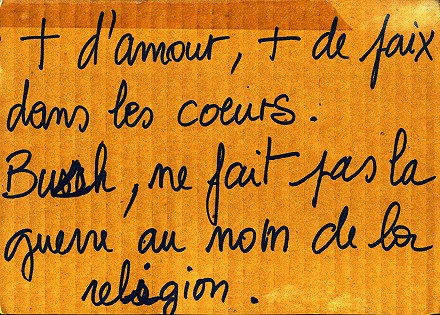 + d'amour, + de paix
dans les coeurs.
Bush, ne fait pas la
guerre au nom de la
religion.